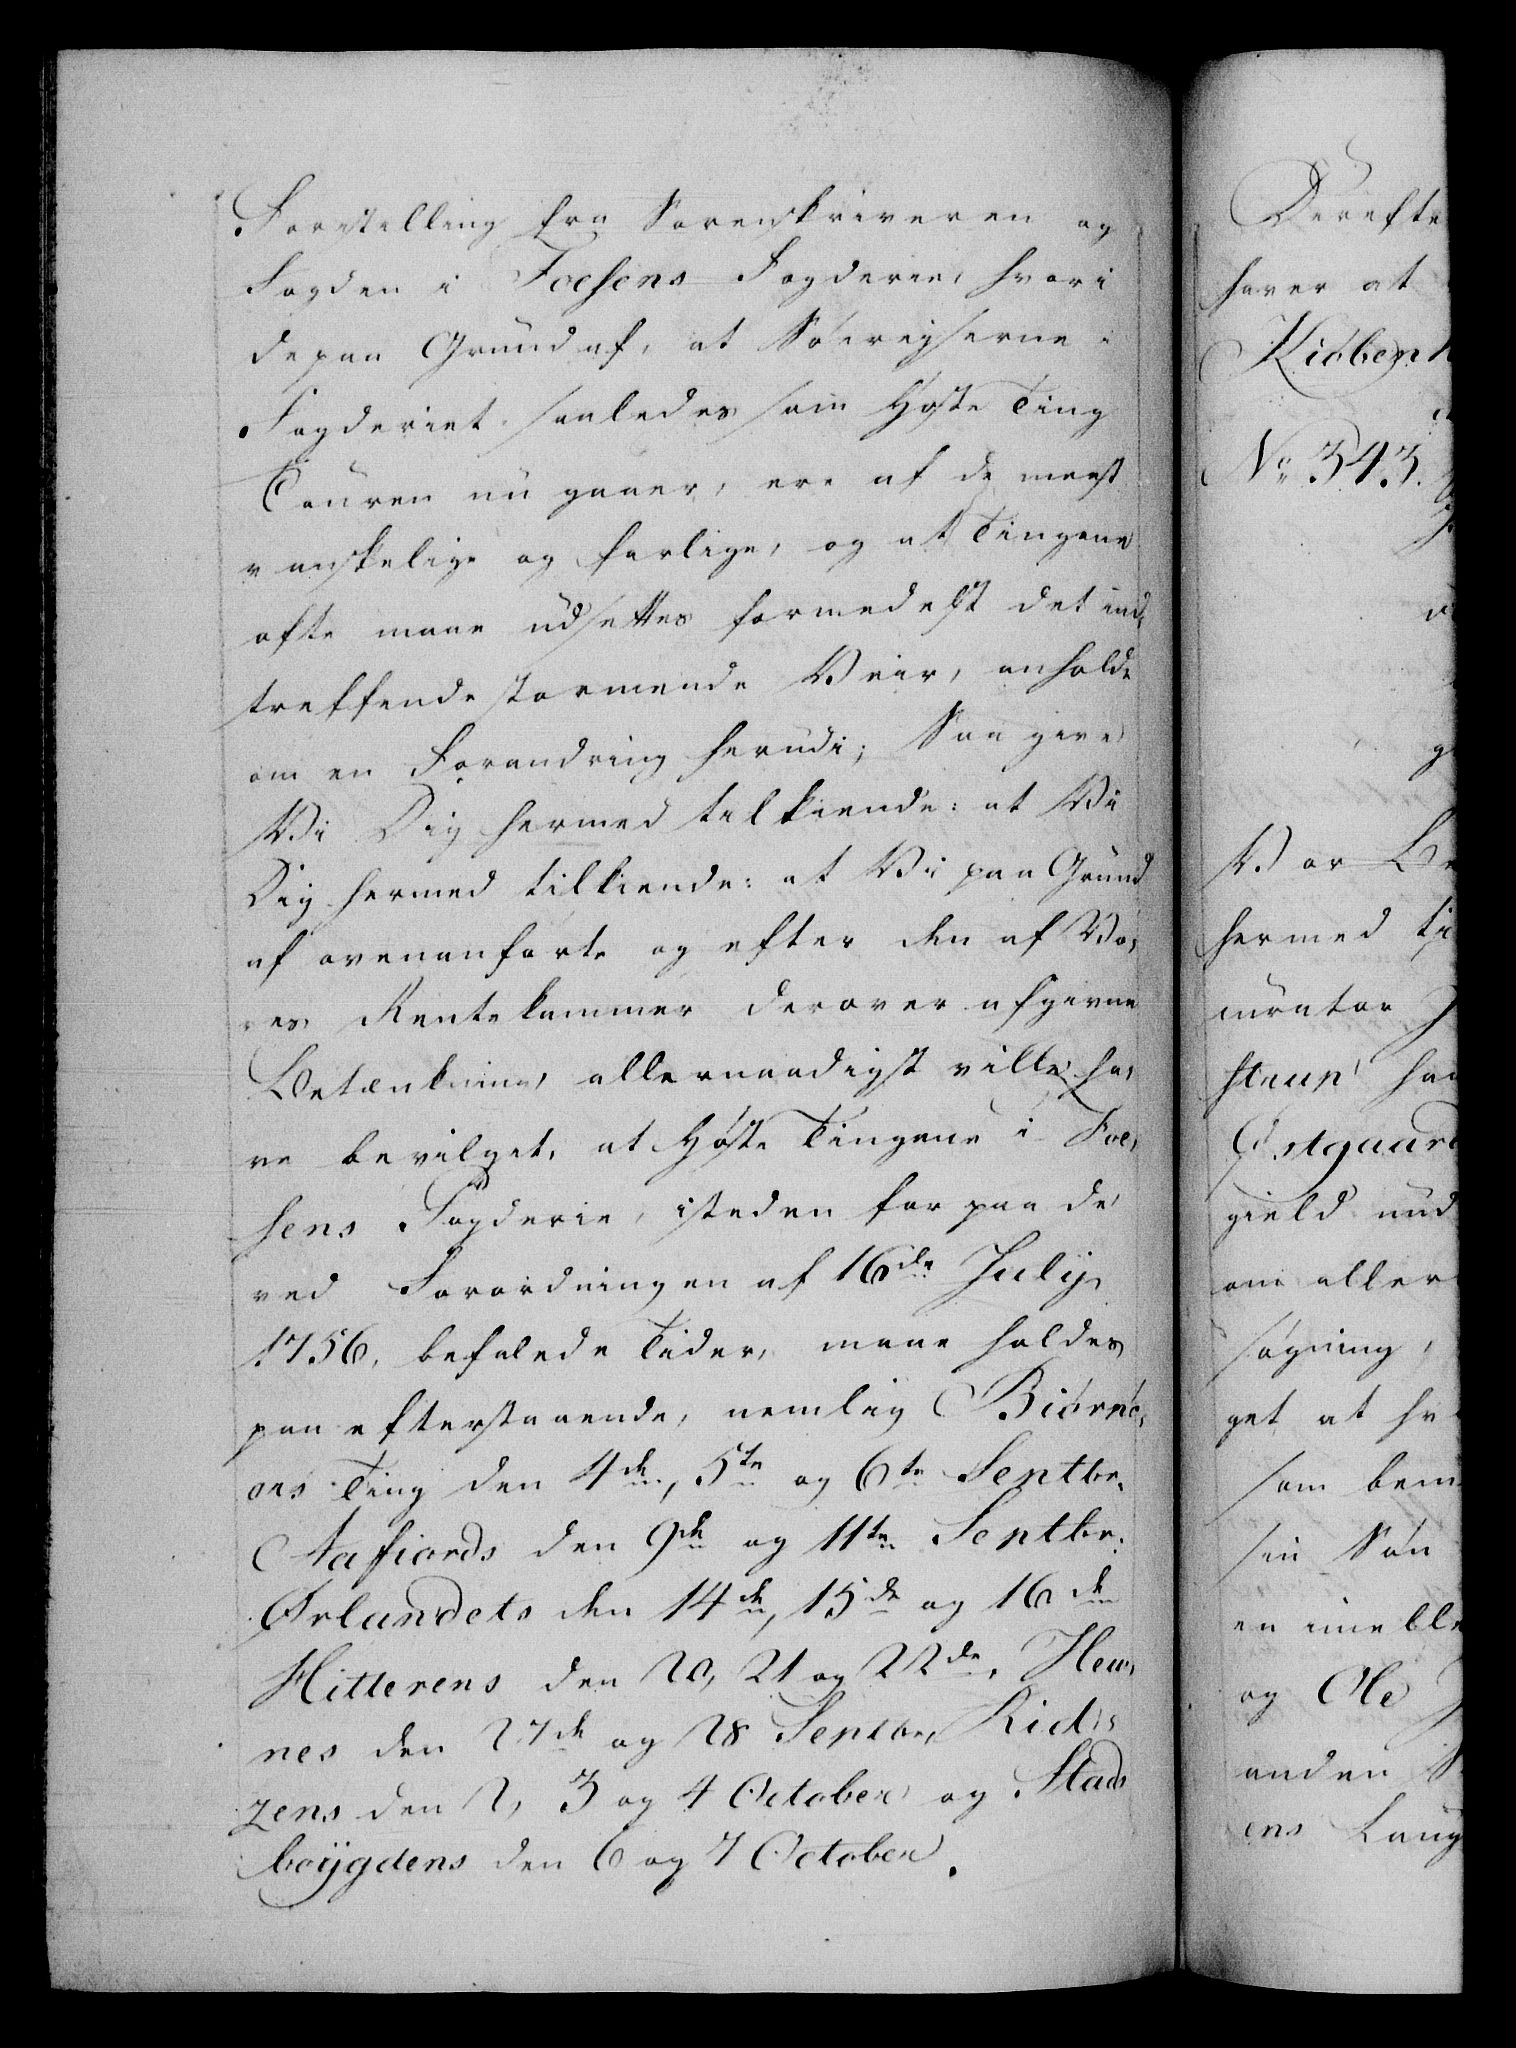 Forestilling fra Sorenskriveren og
Fogden i Foesens Fogderie, hvori
de paa Grund af, at Søereyserne i
Fogderiet saaledes som Høste Ting
Touren nu gaaer, ere af de meest
vanskelige og farlige, og at Tingene
ofte maae udsettes formedelst det ind,
treffende stormende Veir, anholde
om en Forandring herudi; Saa give
Vi Dig hermed tilkiende: at Vi
Dig hermed tilkiende: at Vi paa Grund
af ovenanførte og efter den af Vo,
res Rentekammer derover afgivne
Betænkning, allernaadigst ville ha,
ve bevilget, at Høste Tingene i Foe,
sens Fogderie, isteden for paa de
ved Forordningen af 16de Julij
1756, befalede Tider, maae holdes
paa efterstaaende, nemlig Biørnø,
ers Ting den 4de, 5te og 6te Septbr.
Aafiords den 9de og 11te Septbr.
Ørlandets den 14de, 15de og 16de
Hitterens den 20, 21 og 22de, Hev,
nes den 27de og 28 Septbr, Rids,
zens den 2, 3 og 4 October og Stads
boÿgdens den 6 og 7 October.
Derefte
haver at
Kiöbenh
No 343.
Vor Be
hermed ti
curator
strup haa
Østgaard
gield und
om aller
søgning,
get at hv
som bem
sin Søn
en umebl
og Ole J
anden S
ens Laug